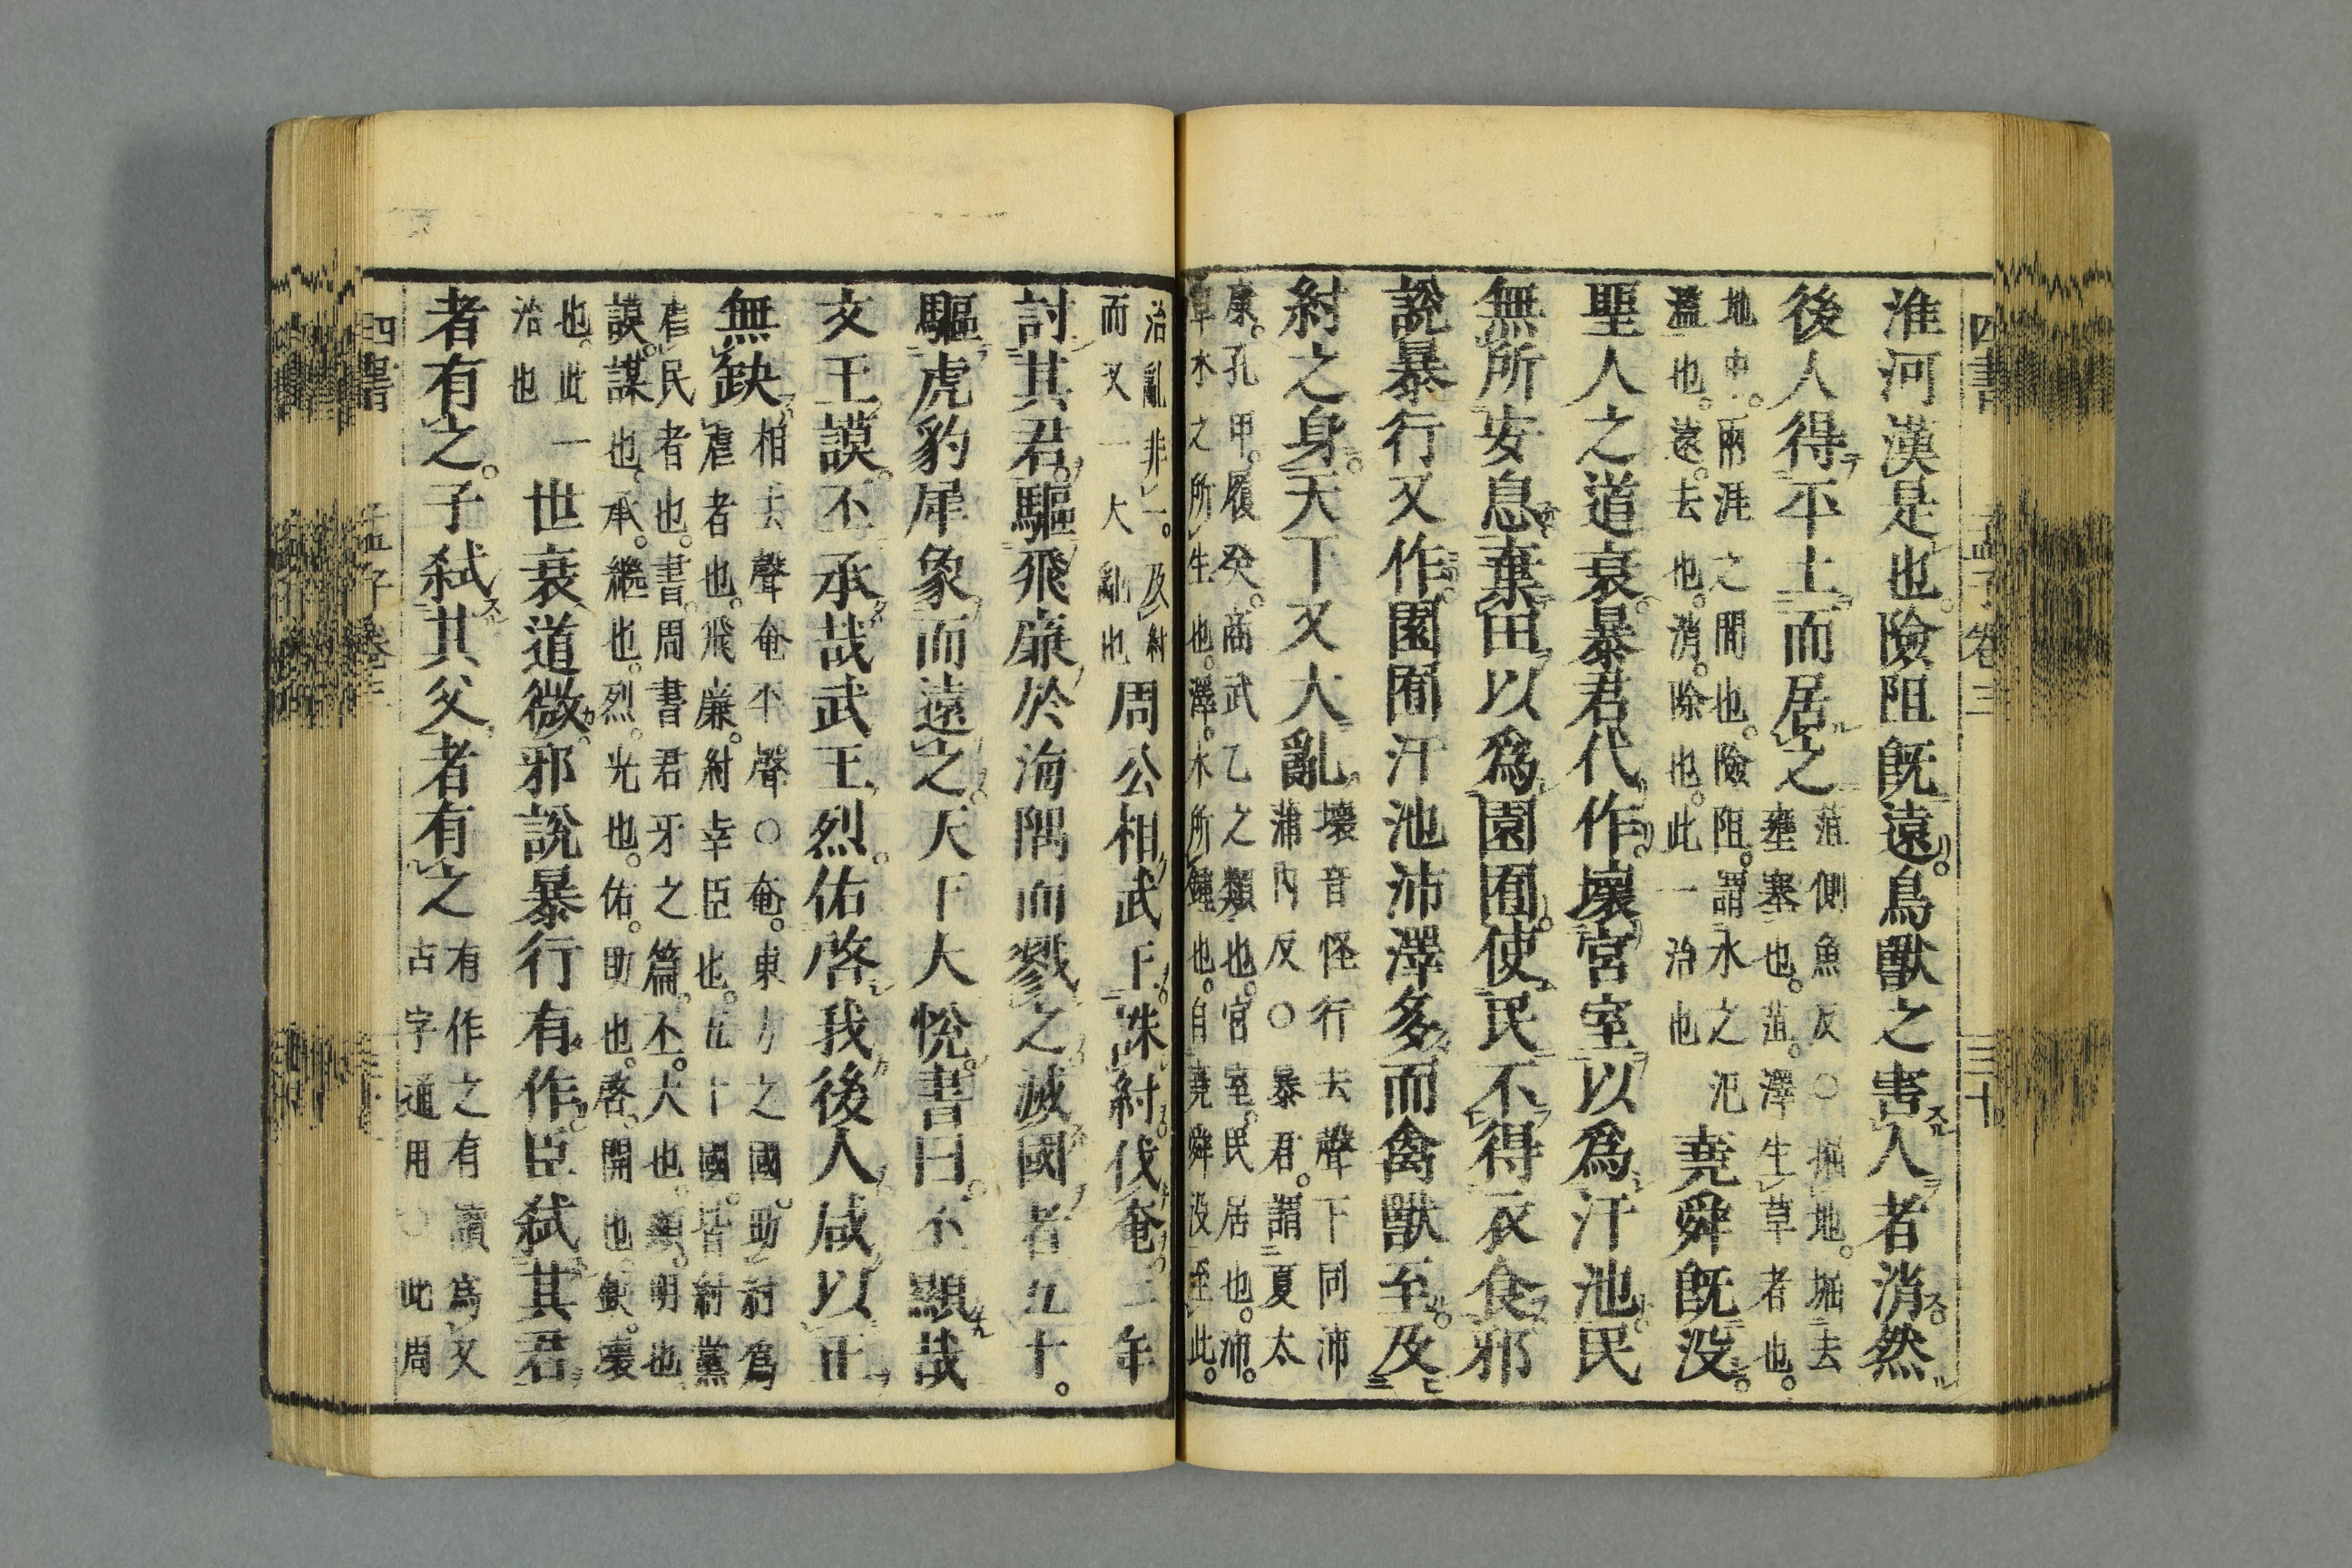 四書 孟子卷三 三十
淮河漢是也險阻旣遠。鳥獸之害人者消。然
後人得平土而居之
菹側魚反○掘地。掘去
壅塞也。菹。澤生草者也。
地中。兩涯之間也。險阻。謂水之氾
濫也。遠。去也。消。除也。此一治也
堯舜旣没。
聖人之道衰。暴君代作。壞宮室以爲汙池。民
無所安息。棄田以爲園囿。使民不得衣食。邪
說暴行又作。園囿汙池沛澤多而禽獸至。及
紂之身。天下又大亂
壞音怪行去聲下同沛
蒲内反○暴君。謂夏太
康。孔甲。履癸。商武乙之類也。宮室。民居也。沛。
草木之所生也。澤。水所鍾也。自堯舜没至此。
治亂非一。及紂
而又一大亂也
周公相武王。誅紂。伐奄。三年
討其君。驅飛廉於海隅而戮之。滅國者五十。
驅虎豹犀象而遠之。天下大悅。書曰。丕顯哉
文王謨。丕承哉武王烈。佑啓我後人咸以正
無缺。
相去聲奄平聲○奄。東方之國。助紂爲
虐者也。飛廉。紂幸臣也。五十國。皆紂黨
虐民者也。書。周書君牙之篇。丕。大也。顯。明也
謨。謀也。承。繼也。烈。光也。佑。助也。啓。開也。缺。壞
也。此一
治也
世衰道微。邪說暴行有作。臣弑其君
者有之。子弑其父者有之
有作之有讀爲又
古字通用○此周
四書 孟子卷三